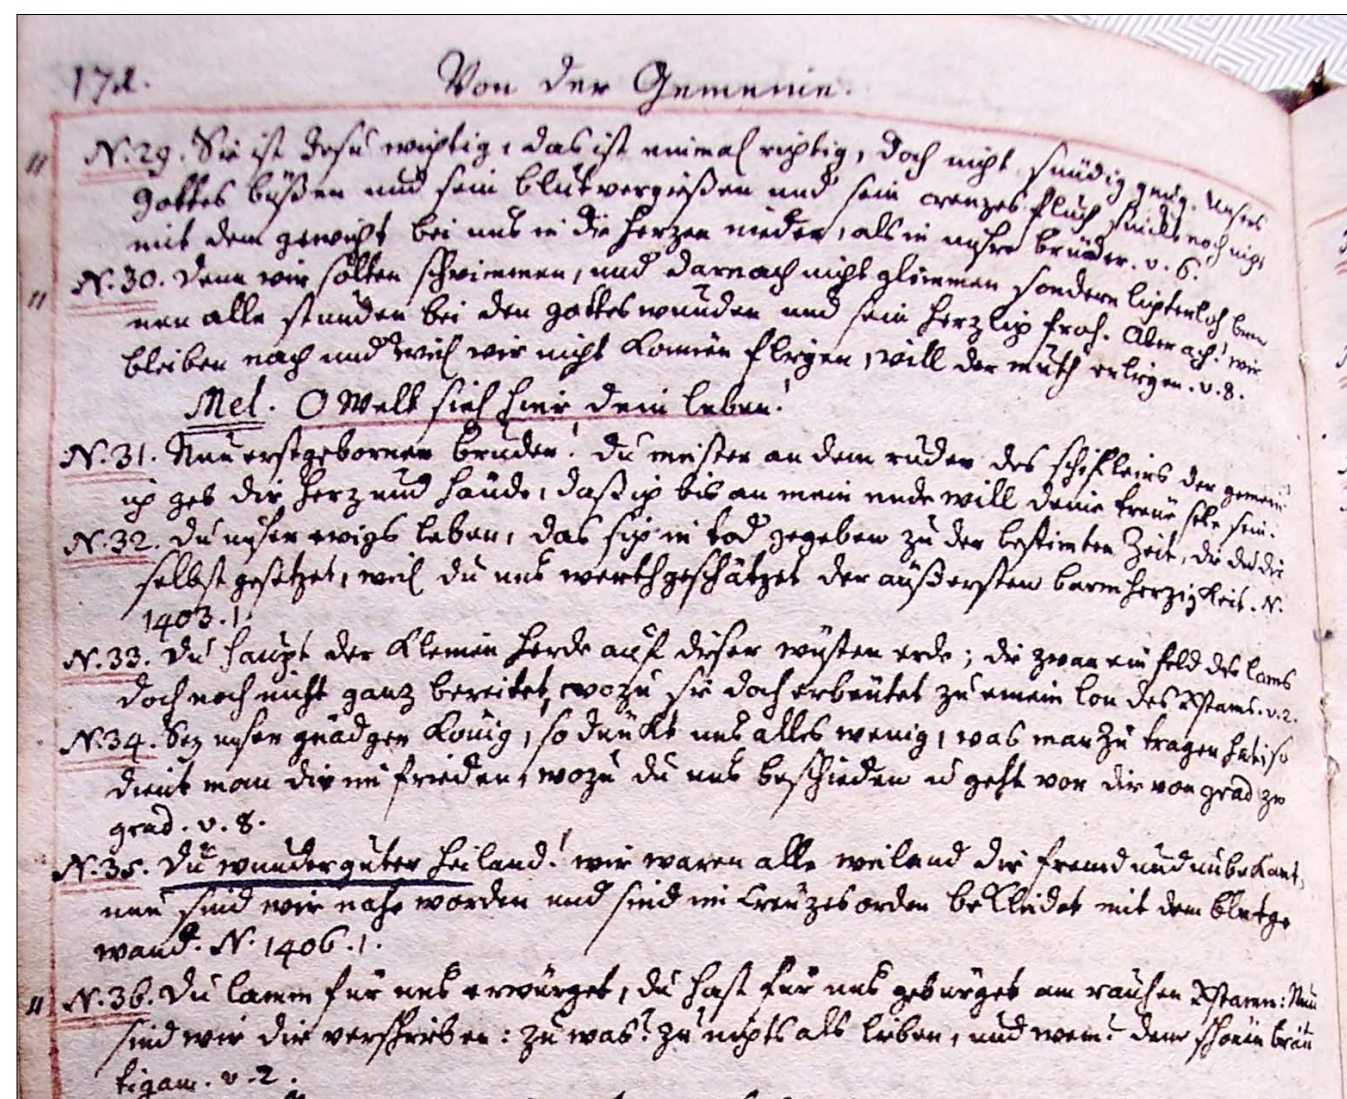 172. Von der Gemeine.
N. 29. Sie ist Jesu wichtig, das ist einmal richtig, doch nicht sündig gnug. Unsers
Gottes büßen und sein blutvergießen und sein creuzes fluch sinkt noch nicht
mit dem gewicht bei uns in die herzen nieder, als in unsre brüder. v. 6.
N. 30. Denn wir solten schwimmen, und darnach nicht glimmen sondern lichterloh bren
nen alle stunden bei den gottes wunden und sein herzlich froh. Aber ach! wir
bleiben nach und weil wir nicht können fliegen, will der muth erligen. v. 8.
Mel. O Welt sieh hier dein leben!
N. 31. Nun erstgeborner bruder! du meister an dem ruder des schifleins der gemein
ich geb dir herz und hände, daß ich bis an mein ende will deine treue sele sein.
N. 32. Du unser ewigs leben, das sich in tod gegeben zu der bestimten Zeit, die du dir
selbst gesetzet, weil du uns werthgeschätzet der äußersten barmherzigkeit. N.
1403. 1.
N. 33. Du haupt der kleinen herde auf dieser wüsten erde; die zwar ein feld des lams
doch noch nicht ganz bereitet, wozu sie doch erbeutet zu einem lon des Xstams. v. 2.
N. 34. Sey unser gnädger König, so dünkt uns alles wenig, was man zu tragen hat; so
dient man dir im frieden, wozu du uns beschieden u geht von dir von grad zu
grad. v. 8.
N. 35. Du wunderguter heiland! wir waren alle weiland dir fremd und unbekant,
nun sind wir nahe worden und sind im Creuzes orden bekleidet mit dem blutge
wand. N. 1406. 1.
N. 36. Du lamm für uns erwürget, du hast für uns gebürget am rauhen Xstamm: Nun
sind wir dir verschrieben: zu was? zu nichts als lieben, und wem? dem schönen bräu
tigam. v. 2.